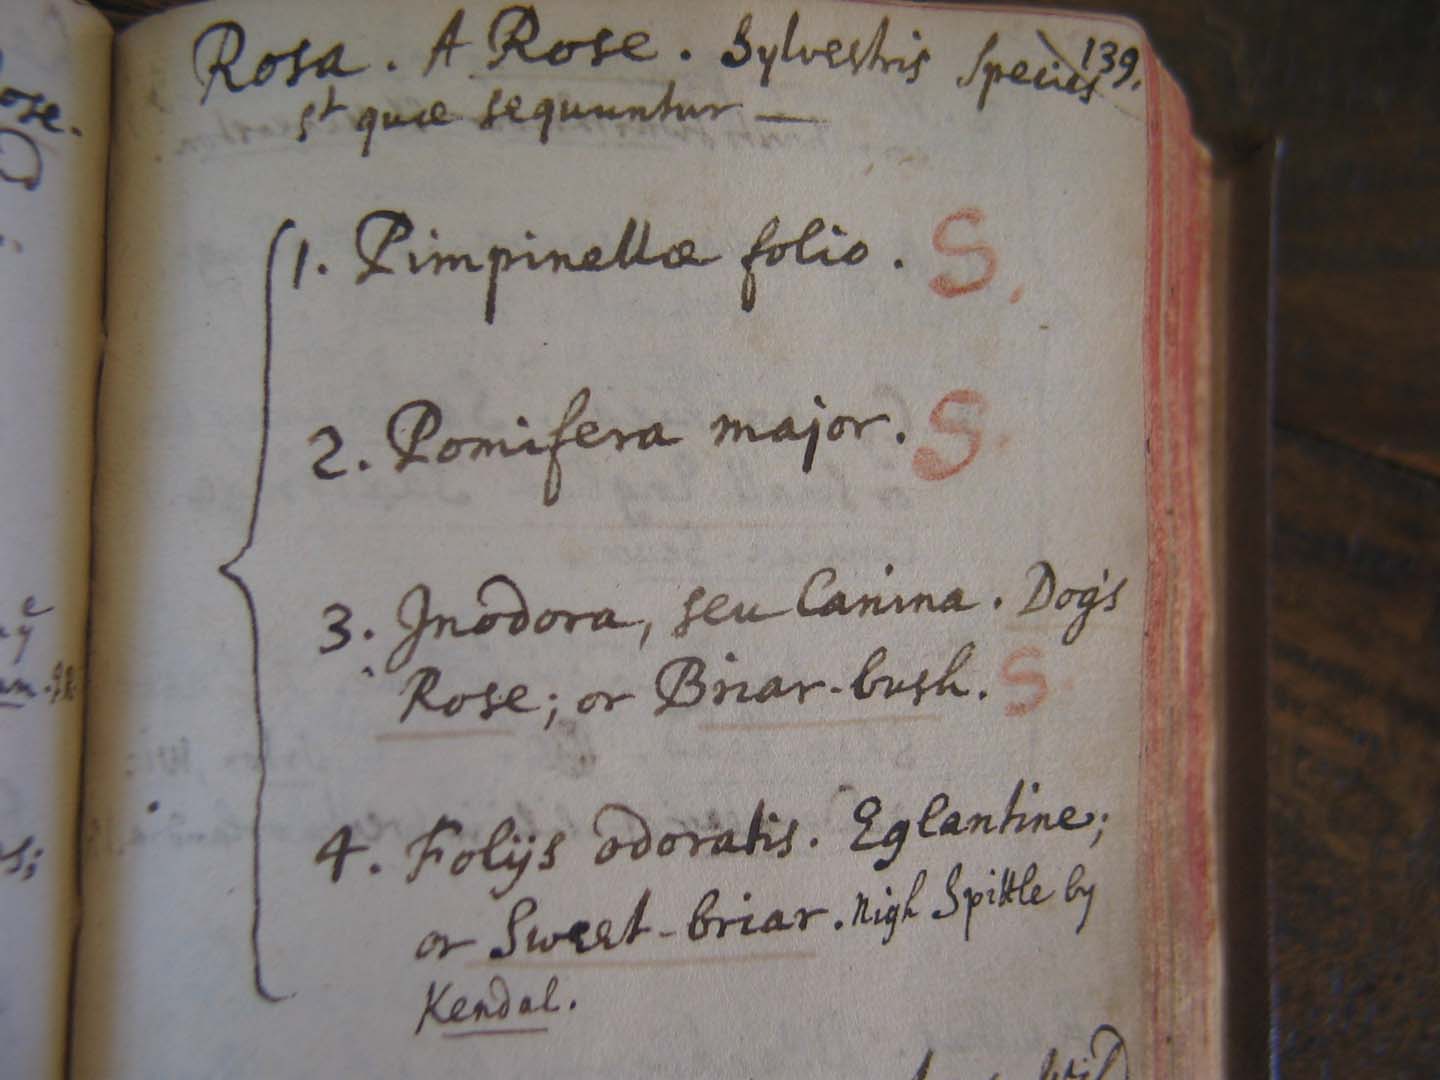 Rosa. A Rose. Sylvestris Species 139.
st quæ sequuntur —
1. Pimpinellæ folio. S.
2. Pomifera major. S.
3. Inodora, seu Canina. Dog's
Rose; or Briar-bush. S.
4. Folijs odoratis. Eglantine;
or Sweet-briar. nigh Spittle by
Kendal.
ose.